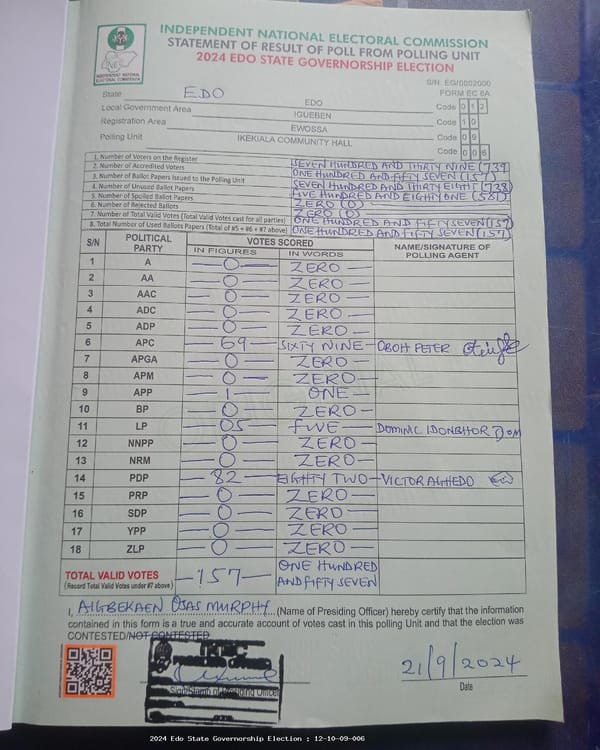 INDEPENDENT NATIONAL ELECTORAL COMMISSION
STATEMENT OF RESULT OF POLL FROM POLLING UNIT
2024 EDO STATE GOVERNORSHIP ELECTION
INDEPENDENT NATIONAL ELECTORAL COMMISSION
S/N: EG/0002000
FORM EC 8A
State EDO EDO Code 012
Local Government Area IGUEBEN Code 10
Registration Area EWOSSA Code 09
Polling Unit IKEKIALA COMMUNITY HALL Code 006
1. Number of Voters on the Register SEVEN HUNDRED AND THIRTY NINE (739)
2. Number of Accredited Voters ONE HUNDRED AND FIFTY SEVEN (157)
3. Number of Ballot Papers Issued to the Polling Unit SEVEN HUNDRED AND THIRTY EIGHT (738)
4. Number of Unused Ballot Papers FIVE HUNDRED AND EIGHTY ONE (581)
5. Number of Spoiled Ballot Papers ZERO (0)
6. Number of Rejected Ballots ZERO (0)
7. Number of Total Valid Votes (Total Valid Votes cast for all parties) ONE HUNDRED AND FIFTY SEVEN (157)
8. Total Number of Used Ballots Papers (Total of #5 + #6 + #7 above) ONE HUNDRED AND FIFTY SEVEN (157)
S/N POLITICAL PARTY VOTES SCORED NAME/SIGNATURE OF POLLING AGENT
IN FIGURES IN WORDS
1 A 0 ZERO
2 AA 0 ZERO
3 AAC 0 ZERO
4 ADC 0 ZERO
5 ADP 0 ZERO
6 APC 69 SIXTY NINE OBOH PETER
7 APGA 0 ZERO
8 APM 0 ZERO
9 APP 1 ONE
10 BP 0 ZERO
11 LP 05 FIVE DOMINIC IDONBHOR
12 NNPP 0 ZERO
13 NRM 0 ZERO
14 PDP 82 EIGHTY TWO VICTOR AGHEDO
15 PRP 0 ZERO
16 SDP 0 ZERO
17 YPP 0 ZERO
18 ZLP 0 ZERO
TOTAL VALID VOTES 157 ONE HUNDRED AND FIFTY SEVEN
(Record Total Valid Votes under #7 above)
I, AIGBEKAEN OSAS MURPHY (Name of Presiding Officer) hereby certify that the information
contained in this form is a true and accurate account of votes cast in this polling Unit and that the election was
CONTESTED/NOT CONTESTED
21/9/2024
Date
2024 Edo State Governorship Election : 12-10-09-006